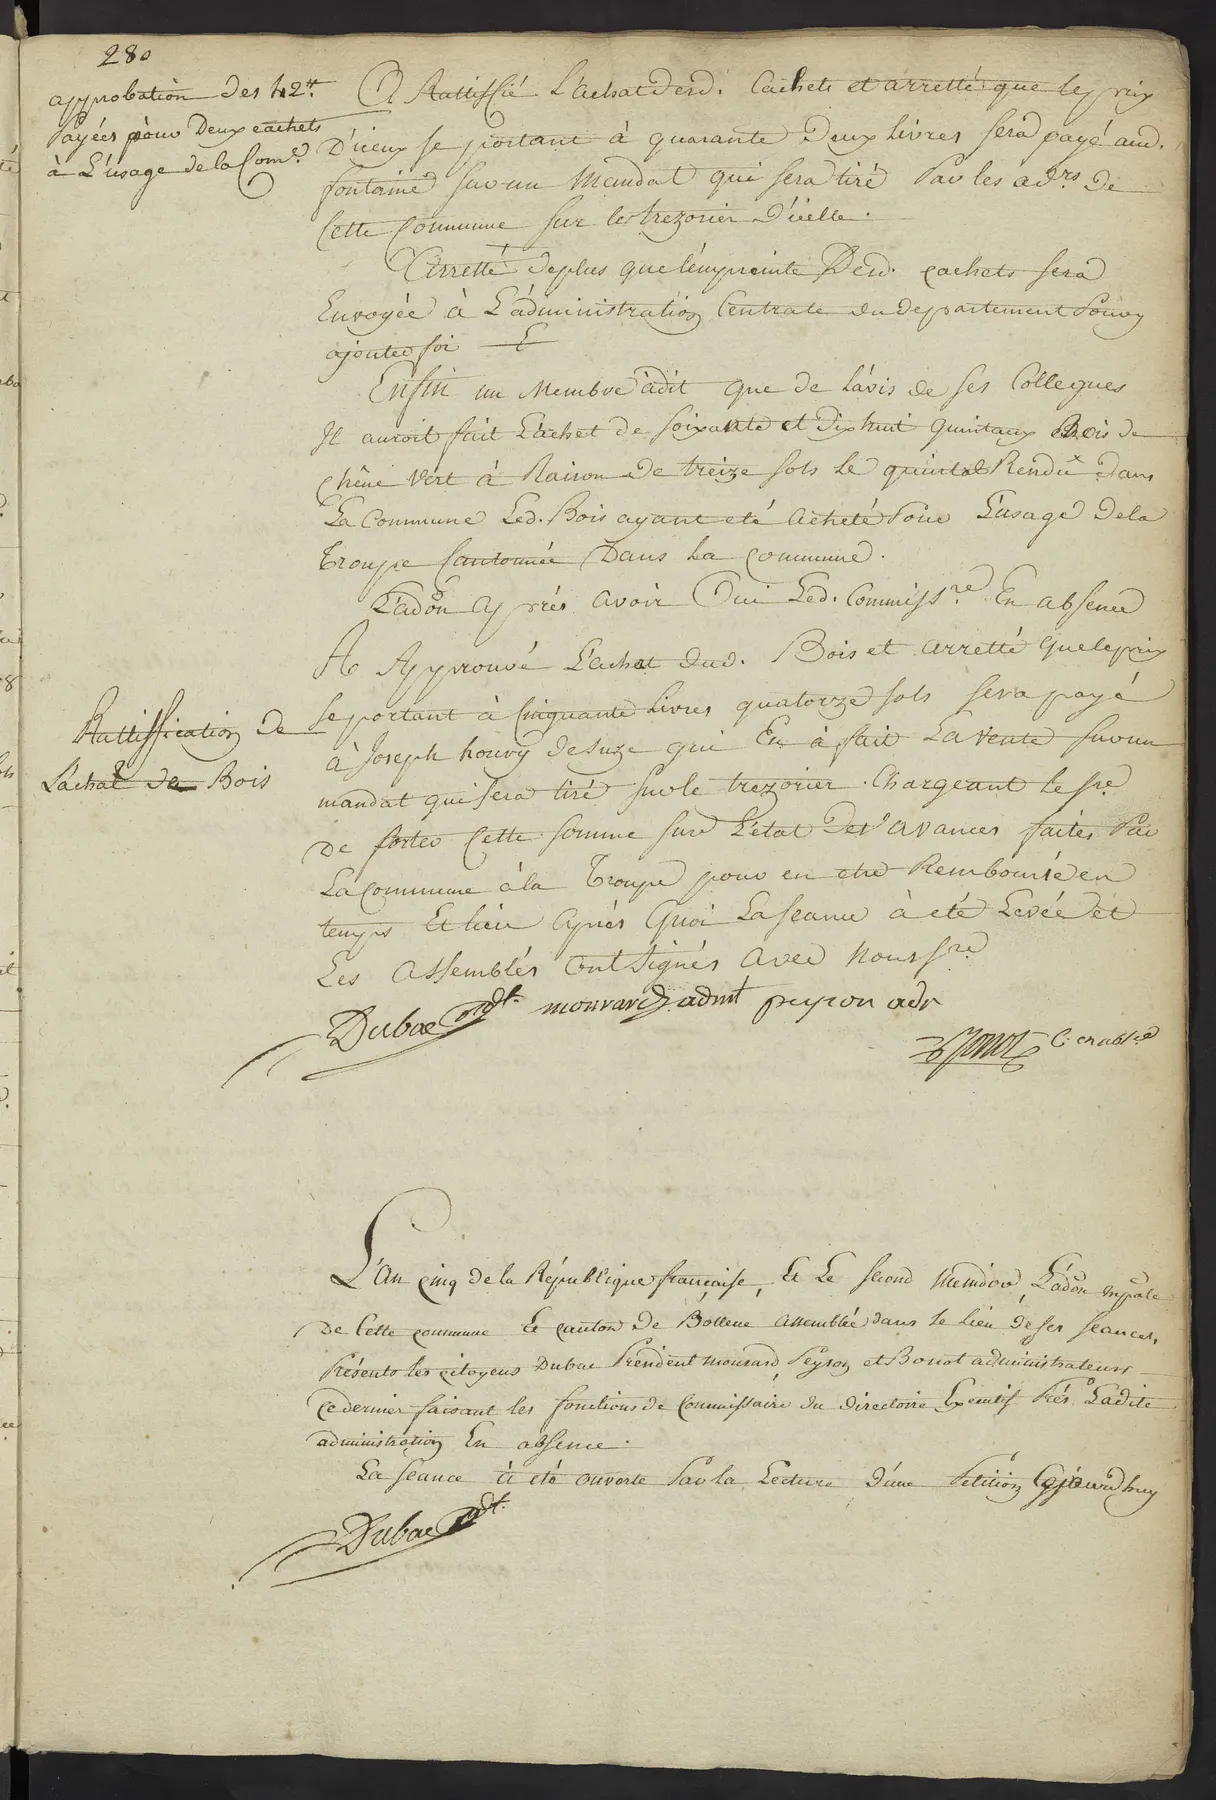 280
approbation des 42 tt
Payées pour Deux cachets
à L'usage de la Com.e
A Rattiffié L'achat desd. Cachets et arretté que le prix
D'iceux se portant à quarante Deux Livres sera payé aud.
fontaine sur un Mandat qui sera tiré Par les ad.rs de
Cette Commune sur le trezorier d'icelle.
Arretté deplus que l'empreinte Desd. cachets sera
Envoyée à L'administration Centrale du departement Pour y
ajouter foi
Enfin un Membre à dit que de l'avis de ses Collegues
Il auroit fait L'achet de soixante et Dix huit quintaux Bois de
chêne vert à Raison de treize sols le quintal Rendu dans
La Commune Led. Bois ayant eté acheté Pour L'usage de la
Troupe Cantonnée Dans La Commune.
L'adon après avoir Oui Led. Commiss.re En absence
A Approuvé L'achat dud. Bois et arretté que le prix
Rattiffication de
L'achat de Bois
se portant à Cinquante Livres quatorze sols sera payé
à Joseph houvy de Suze qui En à fait La Vente sur un
mandat qui sera tiré sur le trezorier. Chargeant le s.re
de porter Cette somme sur L'état des avances faites Par
La Commune à la Troupe pour en etre Remboursée en
temps Et lieu après Quoi La seance à eté Levée et
Les Assemblés Ont Signés avec Nous s.re
Dubac pdt. mourard admt peyron adr
Bonot C. en abs.ce
L'An cinq de la République française, Et Le second Messidor, L'adon mpale
De Cette commune Et canton de Bollene assemblée dans le Lieu de ses seances,
Présents les citoyens Dubac Président mourard Peyron et Bonot administrateurs
Ce dernier faisant les fonctions de Commissaire du Directoire Executif Près Ladite
administration En absence.
La Seance à eté ouverte Par la Lecture d'une Petition Cejourd'huy
Dubac pdt.